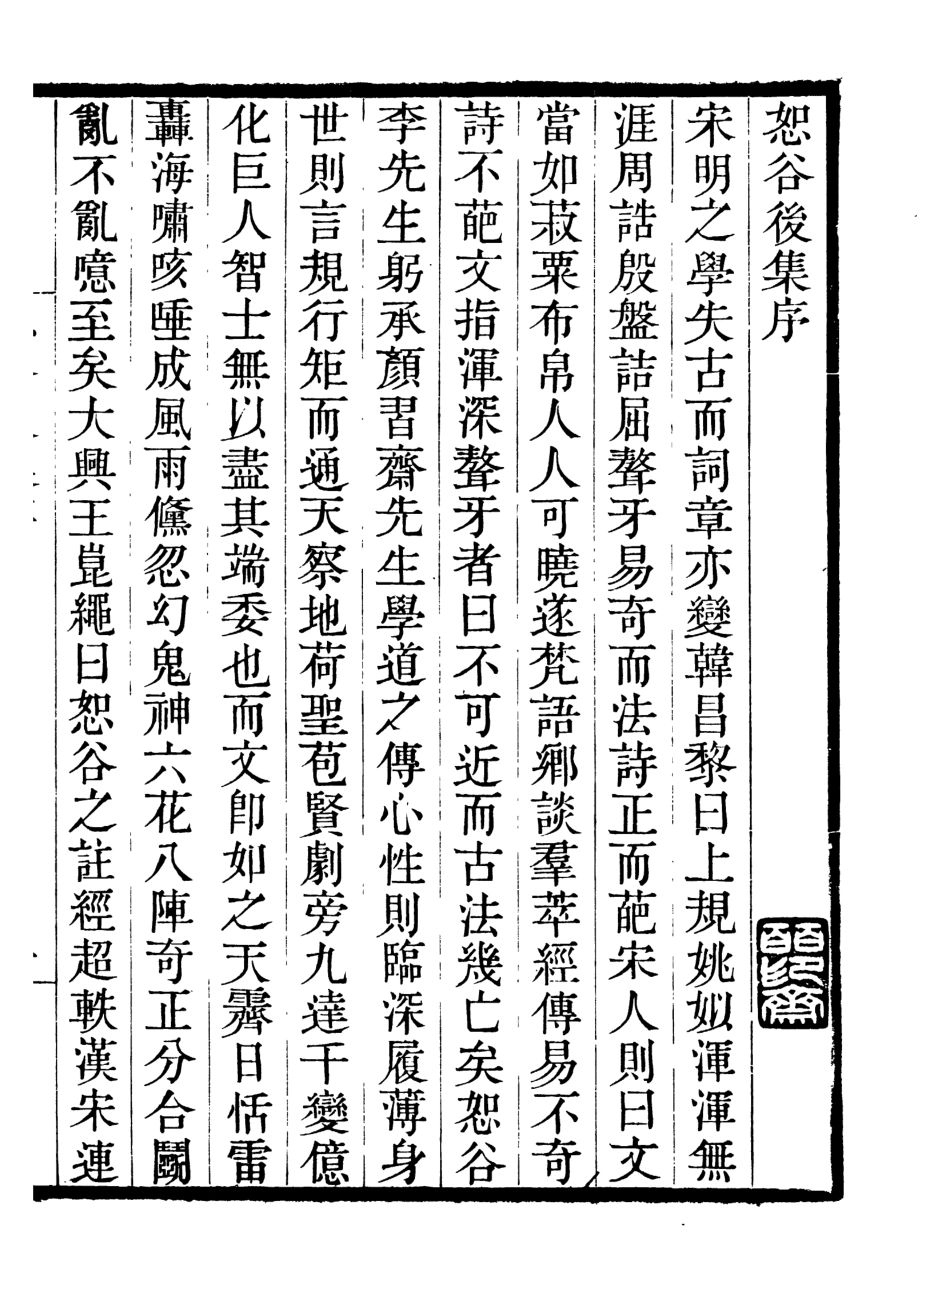 恕谷後集序
宋明之學失古而詞章亦變韓昌黎曰上規姚姒渾渾無
涯周誥殷盤詰屈聱牙易奇而法詩正而葩宋人則曰文
當如菽粟布帛人人可曉遂梵語鄉談羣萃經傳易不奇
詩不葩文指渾深聱牙者曰不可近而古法幾亡矣恕谷
李先生躬承顏習齋先生學道之傳心性則臨深履薄身
世則言規行矩而通天察地荷聖苞賢劇旁九達千變億
化巨人智士無以盡其端委也而文卽如之天霽日恬雷
轟海嘯咳唾成風雨儵忽幻鬼神六花八陣奇正分合鬬
亂不亂噫至矣大興王崑繩曰恕谷之註經超軼漢宋連